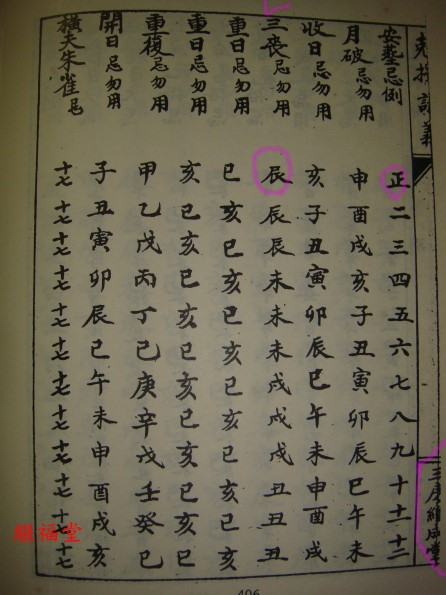 克擇講義
安葬忌例 正 二 三 四 五 六 七 八 九 十 十一 十二
月破忌勿用 申 酉 戌 亥 子 丑 寅 卯 辰 巳 午 未
收日忌勿用 亥 子 丑 寅 卯 辰 巳 午 未 申 酉 戌
三喪忌勿用 辰 辰 辰 未 未 未 戌 戌 戌 丑 丑 丑
重日忌勿用 巳 亥 巳 亥 巳 亥 巳 亥 巳 亥 巳 亥
重日忌勿用 亥 巳 亥 巳 亥 巳 亥 巳 亥 巳 亥 巳
重復忌勿用 甲 乙 戊 丙 丁 己 庚 辛 戊 壬 癸 己
開日忌勿用 子 丑 寅 卯 辰 巳 午 未 申 酉 戌 亥
橫天朱雀忌 十七 十七 十七 十七 十七 十七 十七 十七 十七 十七 十七 十七
三房繼成堂
繼福堂
406